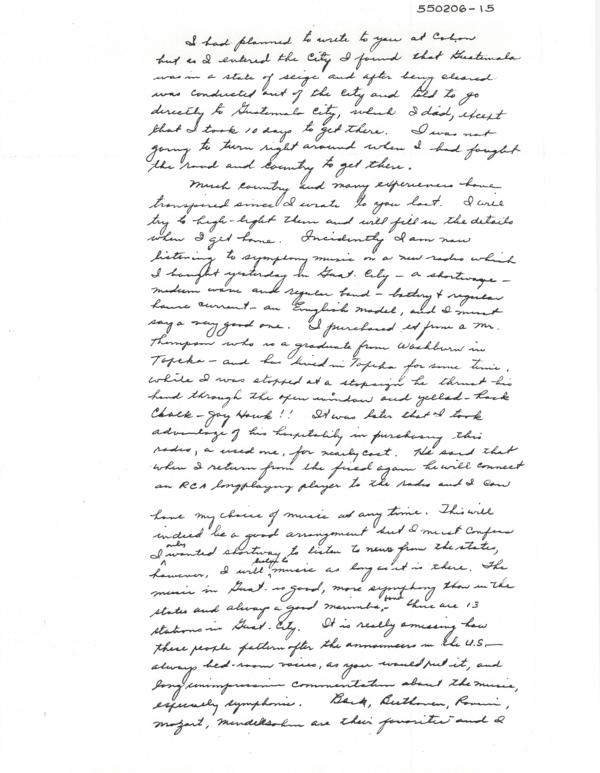 550206-15
I had planned to write to you at Coban
but as I entered the City I found that Guatemala
was in a state of seige and after being cleared
was conducted out of the City and told to go
directly to Guatemala City, which I did, except
that I took 10 days to get there. I was not
going to turn right around when I had fought
the road and country to get there.
Much country and many experiences have
transpired since I wrote to you last. I will
try to high-light them and will fill in the details
when I get home. Incidently I am now
listening to symphony music on a new radio which
I bought yesterday in Guat. City - a shortwave -
medium wave and regular band - battery & regular
house current - an English model, and I must
say a very good one. I purchased it from a Mr.
Thompson who is a graduate from Washburn in
Topeka - and has lived in Topeka for some time.
While I was stopped at a stopsign he thrust his
hand through the open window and yelled - Rock
Chalk - Jay Hawk!! It was later that I took
advantage of his hospitality in purchasing this
radio, a used one, for nearly cost. He said that
when I return from the field again he will connect
an RCA longplaying player to the radio and I can
have my choice of music at any time. This will
indeed be a good arrangement but I must confess
I only wanted shortway to listen to news from the states,
however, I will music as long as it is there. The
music in Guat. is good, more symphony than in the
states and always a good marimba, - there are 13
stations in Guat. City. It is really amissing how
these people pattern after the announcers in the U.S. -
always bed-room voices, as you would put it, and
long unimpressive commentation about the music,
especially symphonic. Bach, Beethoven, Rossini,
Mozart, Mendelsohn are their favorites and I